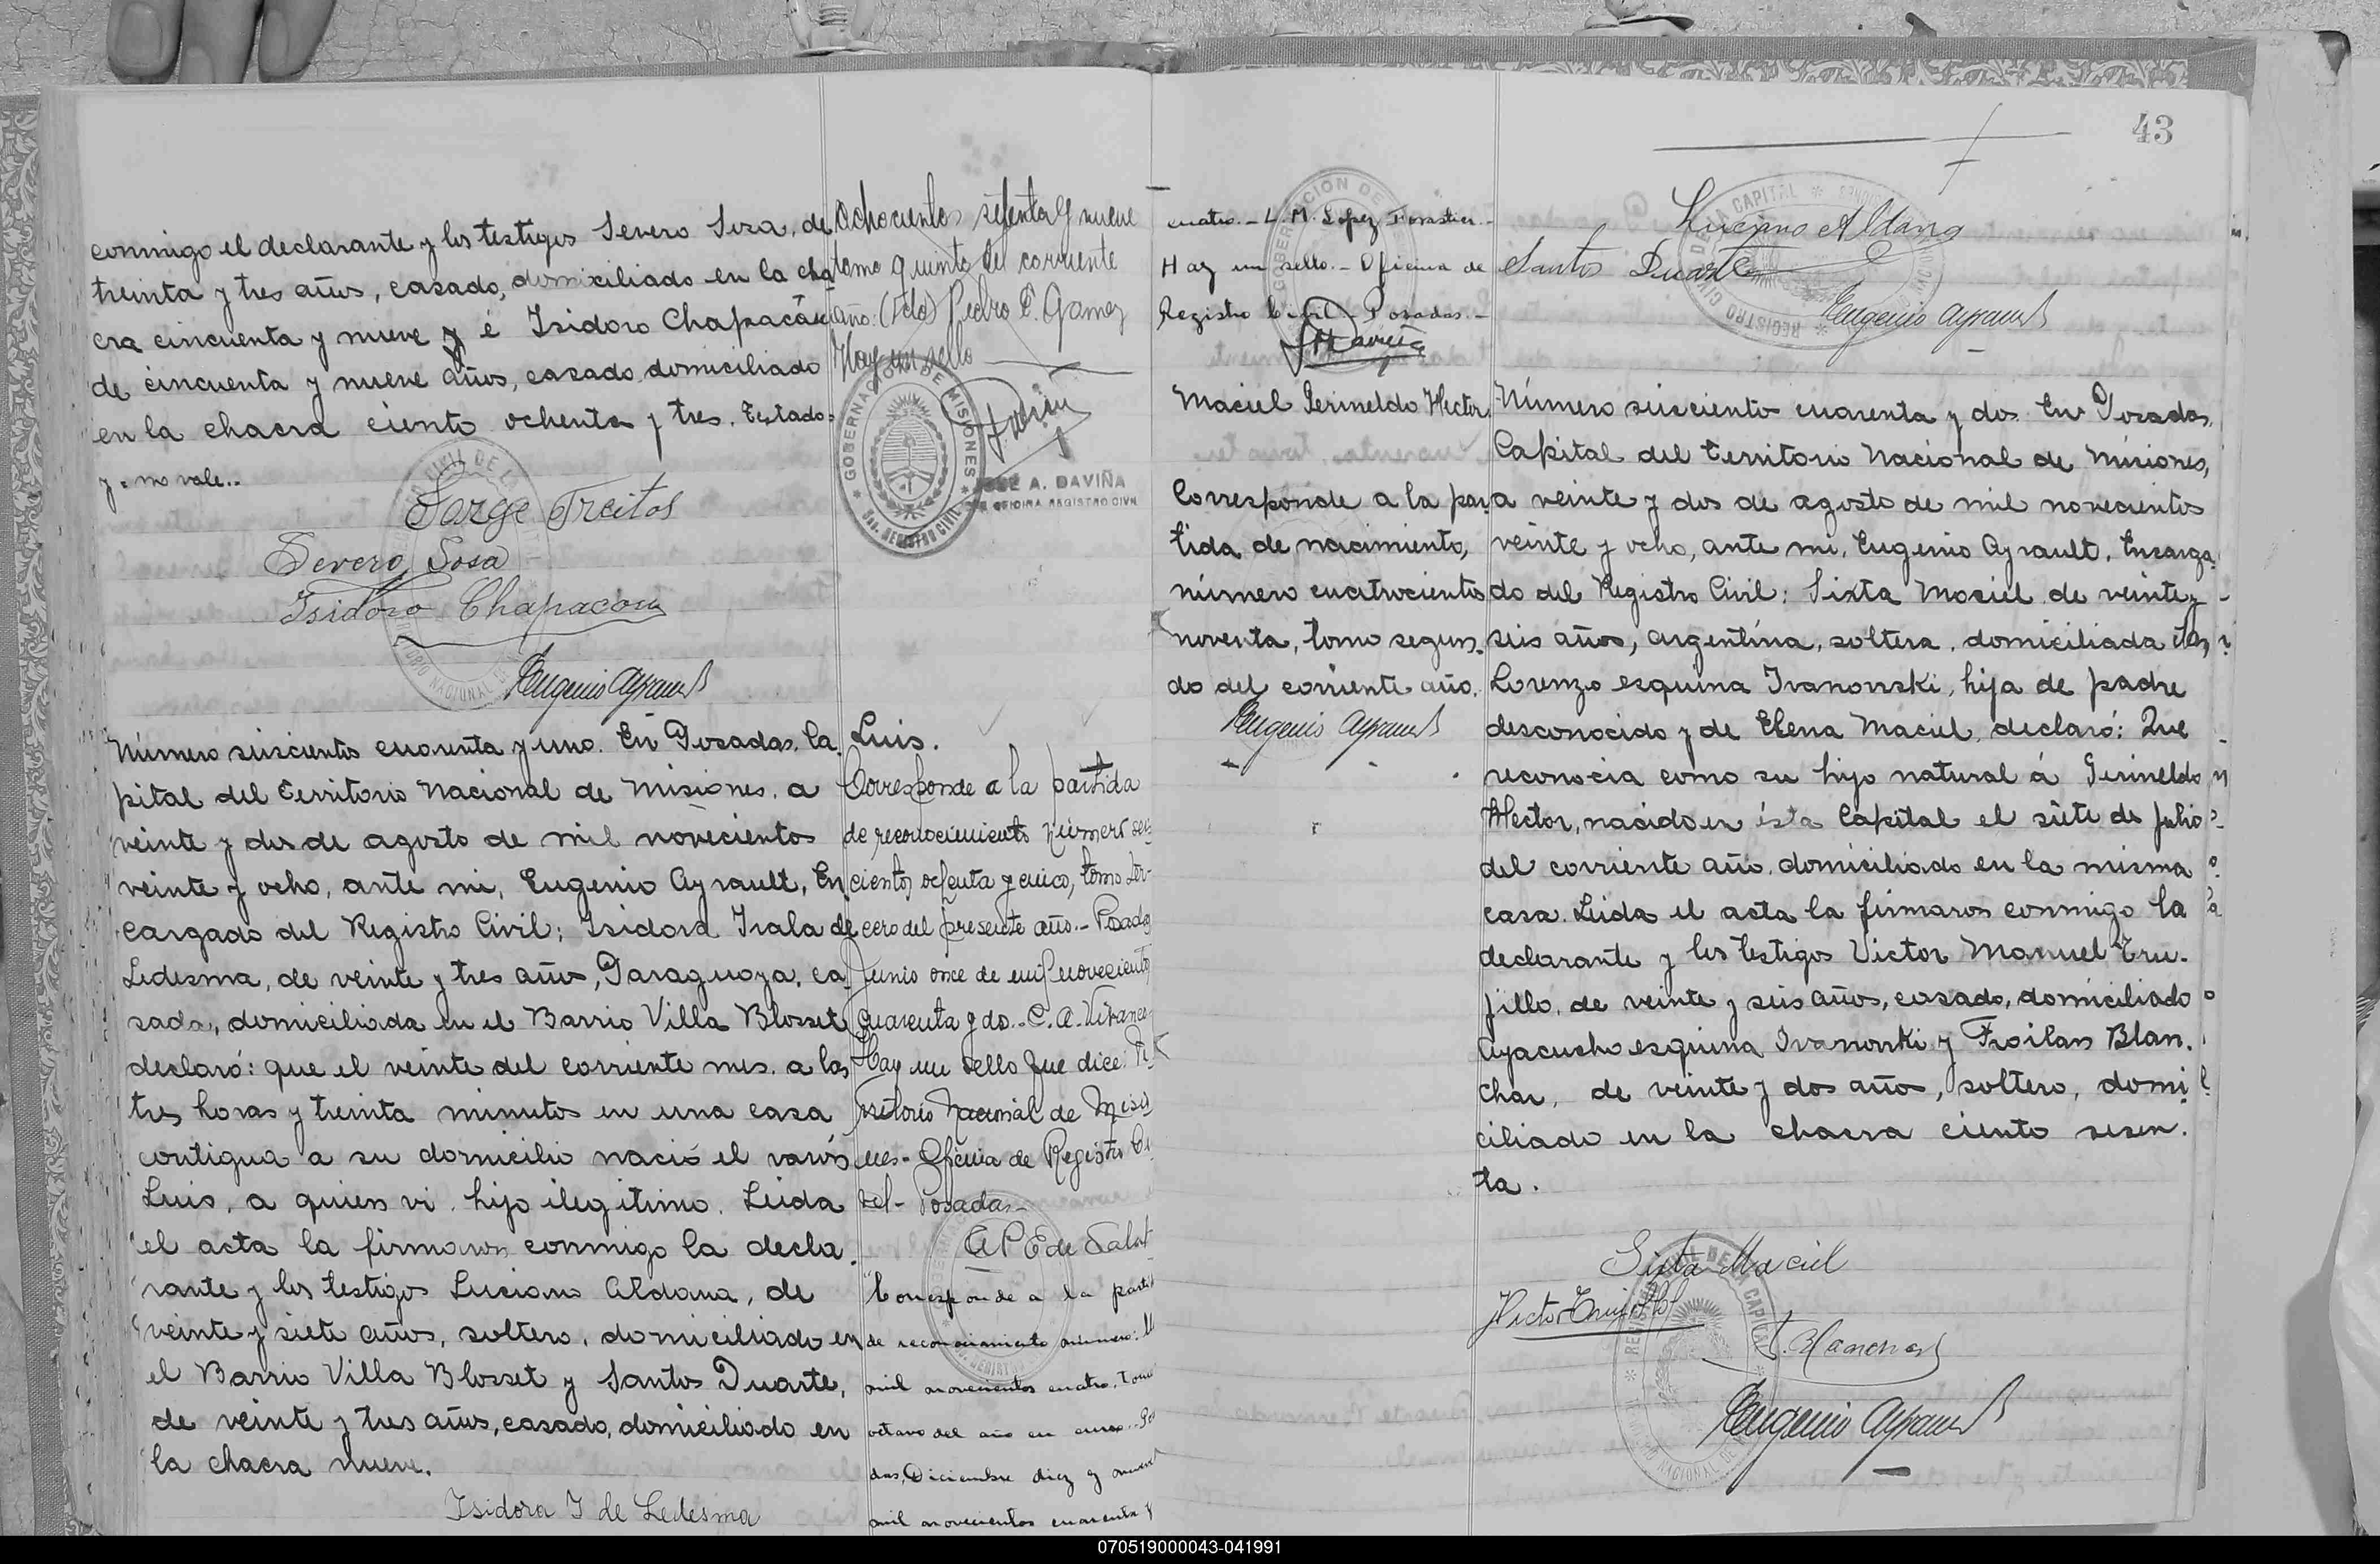 conmigo el declarante y los testigos Severo Sosa, de
treinta y tres años, casado, domiciliado en la cha
cra cincuenta y nueve y é Isidoro Chapacou
de cincuenta y nueve años, casado, domiciliado
en la chacra ciento ochenta y tres. Testado:
y. no vale..
Jorge Freitas
Severo Sosa
Isidoro Chapacou
Eugenio Ayrault
ochocientos setenta y nueve
tomo quinto del corriente
año: (Fdo) Pedro E. Gamez
Hay un sello
GOBERNACION DE MISIONES
REGISTRO CIVIL
JOSE A. DAVIÑA
OFICINA REGISTRO CIVIL
Número seiscientos cuarenta y uno. En Posadas, Ca
pital del Territorio Nacional de Misiones, a
veinte y dos de agosto de mil novecientos
veinte y ocho, ante mi, Eugenio Ayrault, En
cargado del Registro Civil; Isidora Irala de
Ledesma, de veinte y tres años, Paraguaya, ca
sada, domiciliada en el Barrio Villa Blosset
declaró: que el veinte del corriente mes, a las
tres horas y treinta minutos en una casa
contigua a su domicilio nació el varón
Luis, a quien vi, hijo ilegitimo. Leida
el acta la firmaron conmigo la decla
rante y los testigos Luciano Aldana, de
veinte y siete años, soltero, domiciliado en
el Barrio Villa Blosset y Santos Duarte,
de veinte y tres años, casado, domiciliado en
la chacra nueve.
Isidora I de Ledesma
Luis.
Corresponde a la partida
de reconocimiento número seis
cientos ochenta y cinco, tomo ter-
cero del presente año.- Posadas
Junio once de mil novecientos
cuarenta y do.- C. A. Vivanco
Hay un sello que dice: Te
rritorio Nacional de Misio
nes.- Oficina de Registro Ci
vil- Posadas.-
Corresponde a la parti
de reconocimiento número:
mil novecientos cuatro, tomo
octavo del año en curso.- Po
das, Diciembre diez y nueve
mil novecientos cuarenta y
cuatro.- L. M. Lopez Forastier.-
Hay un sello.- Oficina de
Registro Civil- Posadas.-
Maciel Gerineldo Hector
Corresponde a la par
tida de nacimiento,
número cuatrocientos
noventa, tomo segun-
do del corriente año.
Eugenio Ayrault
43
Luciano Aldana
Santos Duarte
Eugenio Ayrault
Número seiscientos cuarenta y dos. En Posadas,
Capital del Territorio Nacional de Misiones,
a veinte y dos de agosto de mil novecientos
veinte y ocho, ante mi, Eugenio Ayrault, Encarga
do del Registro Civil; Sixta Maciel de veinte y
seis años, argentina, soltera, domiciliada San
Lorenzo esquina Ivanowski, hija de padre
desconocido y de Elena Maciel, declaró: Que
reconocia como su hijo natural á Gerineldo
Hector, nacido en ésta Capital el siete de julio
del corriente año, domiciliado en la misma
casa. Leida el acta la firmaron conmigo la
declarante y los testigos Victor Manuel Tru-
jillo, de veinte y seis años, casado, domiciliado
Ayacucho esquina Ivanowski y Froilan Blan-
char, de veinte y dos años, soltero, domi
ciliado en la chacra ciento sesen-
ta.
Sixta Maciel
Victor Trujillo
Eugenio Ayrault
070519000043-041991